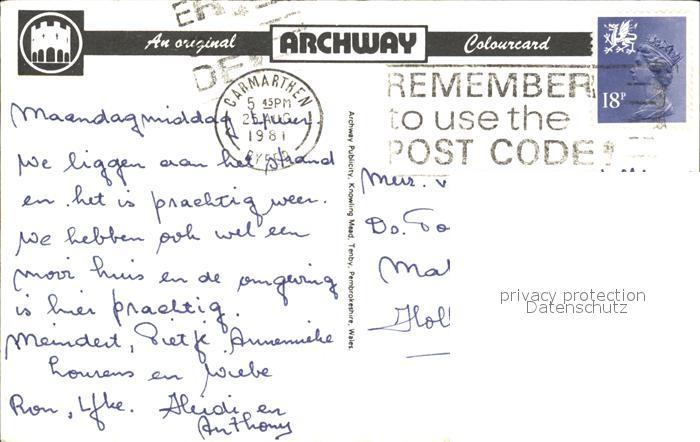 An original ARCHWAY Colourcard
CARMARTHEN
5 45PM
25 AUG
1981
DYFED
REMEMBER
to use the
POST CODE
18P
Maandagmiddag 4 uur.
We liggen aan het strand
en het is prachtig weer.
We hebben ook wel een
mooi huis en de omgeving
is hier prachtig.
Meindert, Pietje, Annemieke
Lourens en Wiebe
Ron, Lyke. Heidi en
Anthony
Archway Publicity, Knowling Mead, Tenby, Pembrokeshire, Wales.
Mevr. v
Do. To
Mak
Holl
privacy protection
Datenschutz